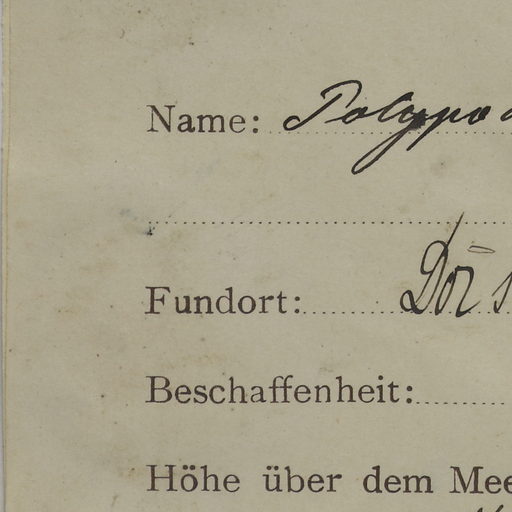 Name: Polypo
Fundort: Dör
Beschaffenheit:
Höhe über dem Mee